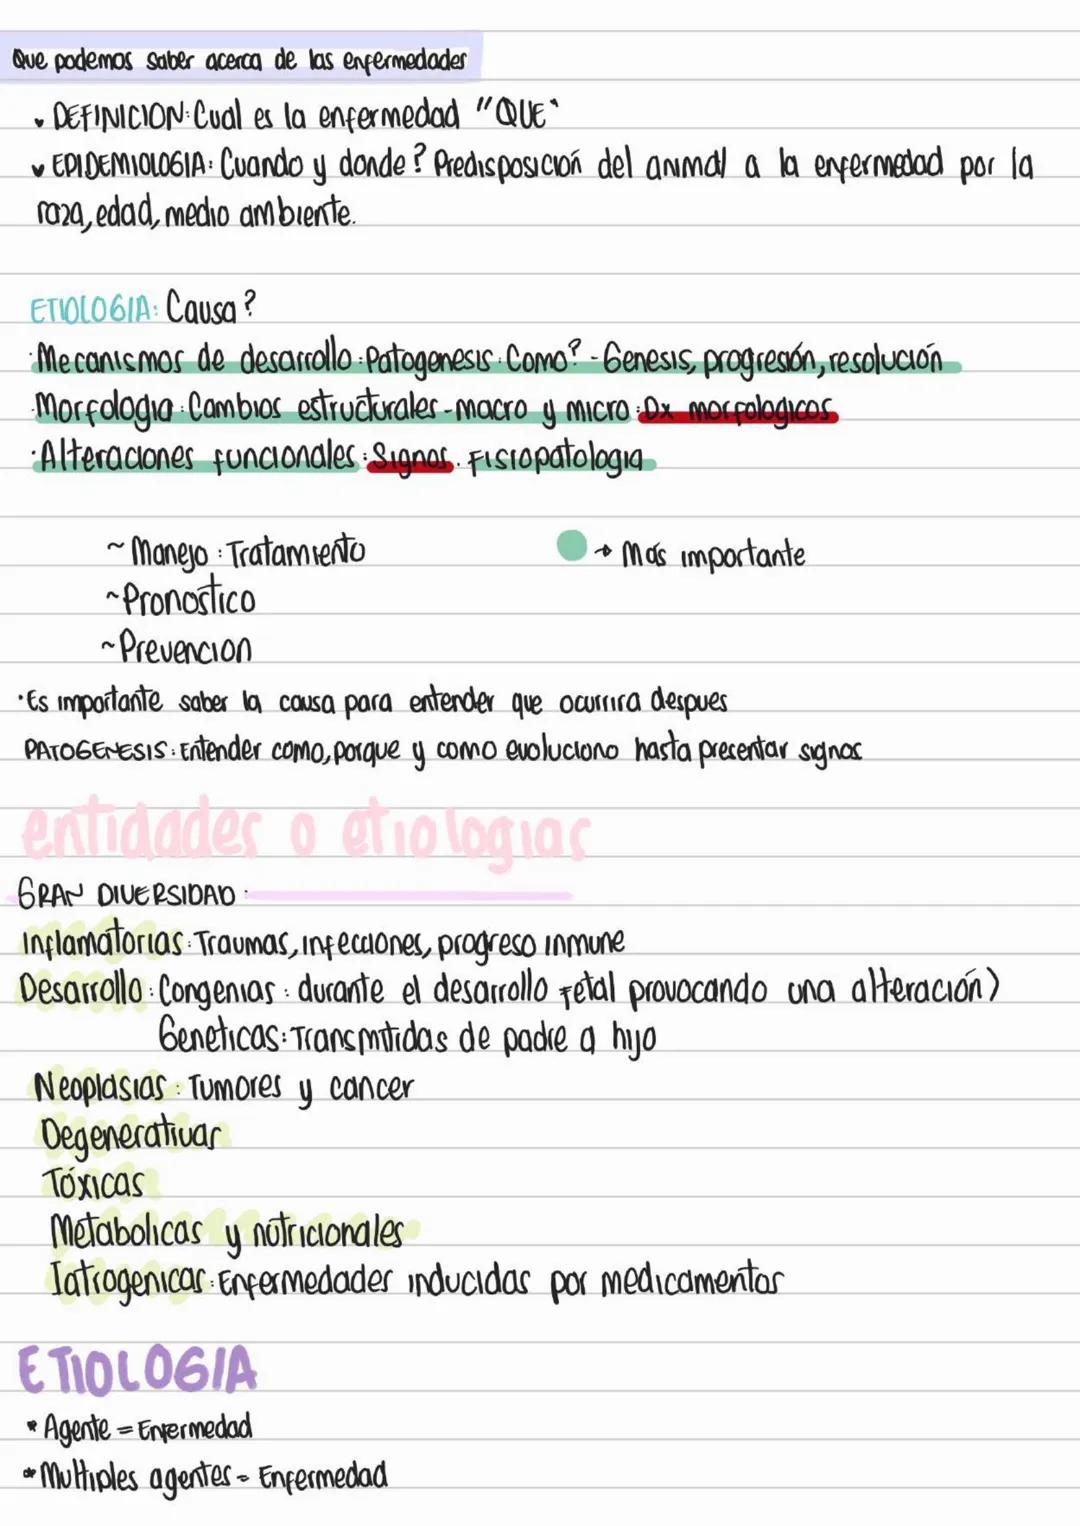 Que podemos saber acerca de las enfermedades
DEFINICION: Cual es la enfermedad "QUE"
EPIDEMIOLOGIA: Cuando y donde? Predisposición del animal a la enfermedad por la
raza, edad, medio ambiente.
ETIOLOGIA: Causa?
· Mecanismos de desarrollo: Patogenesis: Como? - Genesis, progresión, resolución
· Morfologia: Cambios estructurales - macro y micro: Dx morfologicos
· Alteraciones funcionales: Signos. Fisiopatologia
~ Manejo: Tratamiento → Más importante
~ Pronostico
~ Prevencion
· Es importante saber la causa para entender que ocurrira despues
PATOGENESIS: Entender como, porque y como evoluciono hasta presentar signos
entidades o etiologias
GRAN DIVERSIDAD:
Inflamatorias: Traumas, infecciones, progreso inmune
Desarrollo: Congenias: durante el desarrollo fetal provocando una alteración)
Geneticas: Transmitidas de padre a hijo
Neoplasias: Tumores y cancer
Degenerativas
Tóxicas
Metabolicas y nutricionales
Iatrogenicas: Enfermedades inducidas por medicamentos
ETIOLOGIA
* Agente = Enfermedad
* Multiples agentes = Enfermedad